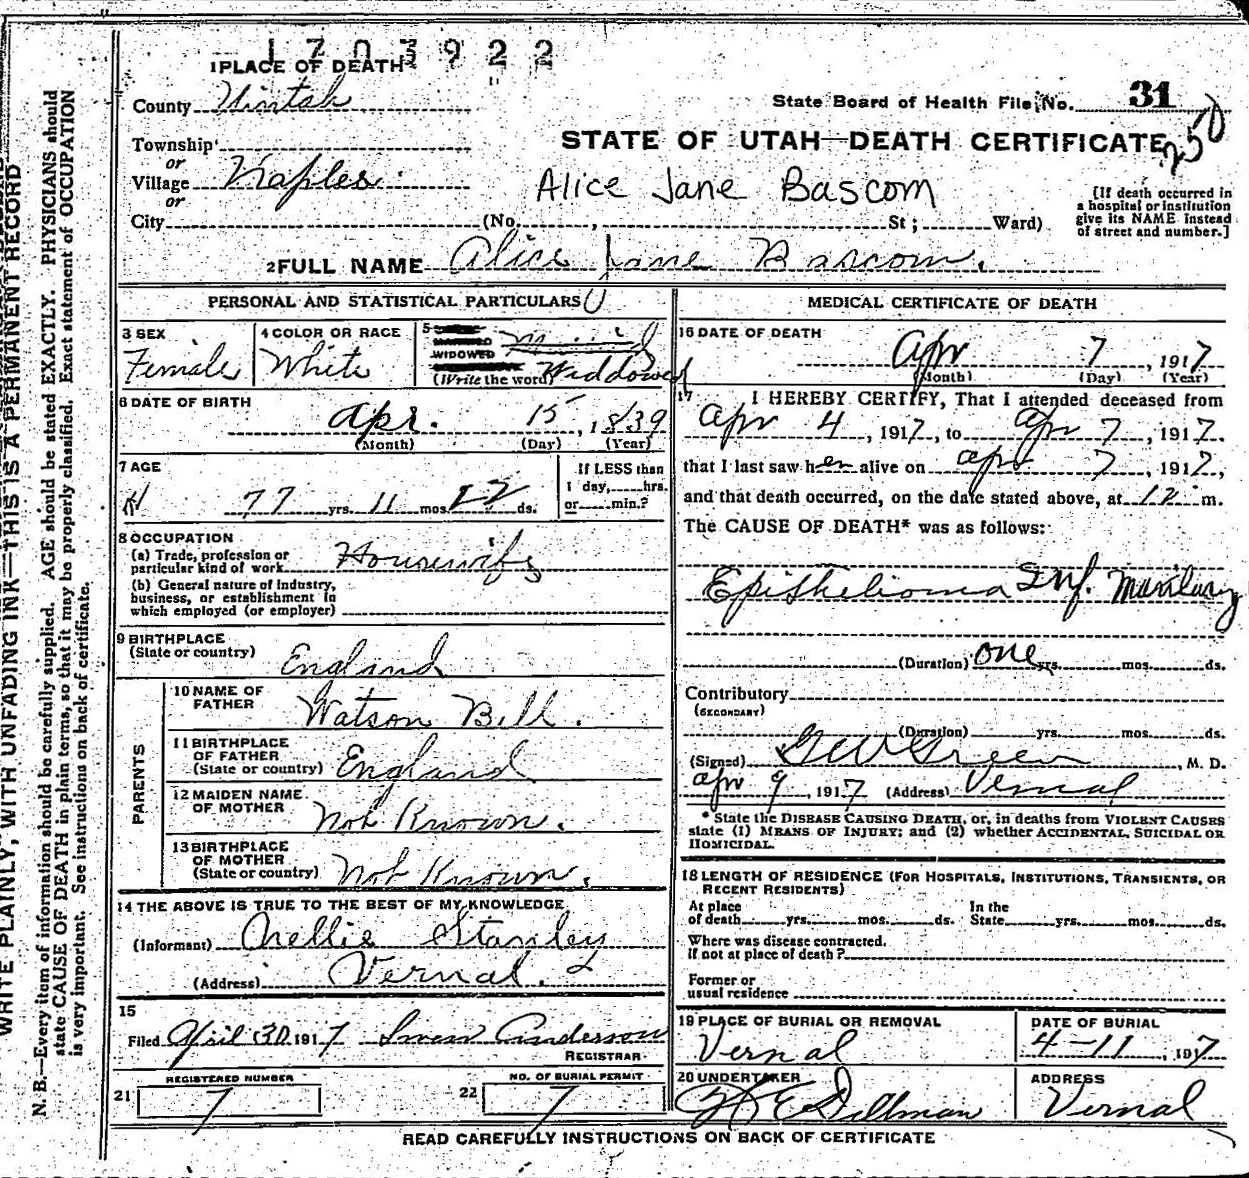 1703922
1 PLACE OF DEATH
County Uintah
State Board of Health File No. 31
250
STATE OF UTAH—DEATH CERTIFICATE
Township
or
Village Naples
or
City (No. , St; Ward)
Alice Jane Bascom
[If death occurred in
a hospital or institution
give its NAME instead
of street and number.]
2 FULL NAME Alice Jane Bascom.
PERSONAL AND STATISTICAL PARTICULARS
3 SEX
Female
4 COLOR OR RACE
White
5
MARRIED
WIDOWED
(Write the word) Widdowed
6 DATE OF BIRTH
Apr. 15, 1839
(Month) (Day) (Year)
7 AGE
77 yrs. 11 mos. 22 ds.
If LESS than
1 day, hrs.
or min.?
8 OCCUPATION
(a) Trade, profession or
particular kind of work Housewife
(b) General nature of industry,
business, or establishment in
which employed (or employer)
9 BIRTHPLACE
(State or country) England
PARENTS
10 NAME OF
FATHER Watson Bell.
11 BIRTHPLACE
OF FATHER
(State or country) England
12 MAIDEN NAME
OF MOTHER Not Known.
13 BIRTHPLACE
OF MOTHER
(State or country) Not Known.
14 THE ABOVE IS TRUE TO THE BEST OF MY KNOWLEDGE
(Informant) Nellie Stanley
(Address) Vernal.
15
Filed April 30 1917 Anderson
REGISTRAR
REGISTERED NUMBER
21 7
NO. OF BURIAL PERMIT
22 7
MEDICAL CERTIFICATE OF DEATH
16 DATE OF DEATH
Apr 7, 1917
(Month) (Day) (Year)
17 I HEREBY CERTIFY, That I attended deceased from
Apr 4, 1917, to Apr 7, 1917.
that I last saw her alive on Apr 7, 1917,
and that death occurred, on the date stated above, at 12 m.
The CAUSE OF DEATH* was as follows:
Epithelioma Inf. Maxilary
(Duration) one yrs. mos. ds.
Contributory
(SECONDARY)
(Duration) yrs. mos. ds.
(Signed) G W Green, M. D.
Apr 9, 1917 (Address) Vernal
* State the DISEASE CAUSING DEATH, or, in deaths from VIOLENT CAUSES
state (1) MEANS OF INJURY; and (2) whether ACCIDENTAL, SUICIDAL OR
HOMICIDAL.
18 LENGTH OF RESIDENCE (FOR HOSPITALS, INSTITUTIONS, TRANSIENTS, OR
RECENT RESIDENTS)
At place
of death yrs. mos. ds.
In the
State yrs. mos. ds.
Where was disease contracted,
if not at place of death?
Former or
usual residence
19 PLACE OF BURIAL OR REMOVAL
Vernal
DATE OF BURIAL
4-11, 1917
20 UNDERTAKER
Dillman
ADDRESS
Vernal
READ CAREFULLY INSTRUCTIONS ON BACK OF CERTIFICATE
WRITE PLAINLY, WITH UNFADING INK—THIS IS A PERMANENT RECORD
N. B.—Every item of information should be carefully supplied. AGE should be stated EXACTLY. PHYSICIANS should
state CAUSE OF DEATH in plain terms, so that it may be properly classified. Exact statement of OCCUPATION
is very important. See instructions on back of certificate.